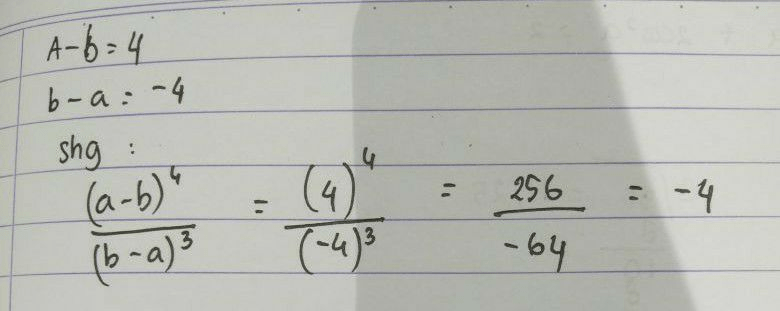 A-b = 4
b-a = -4
shg :
(a-b)⁴/(b-a)³ = (4)⁴/(-4)³ = 256/-64 = -4